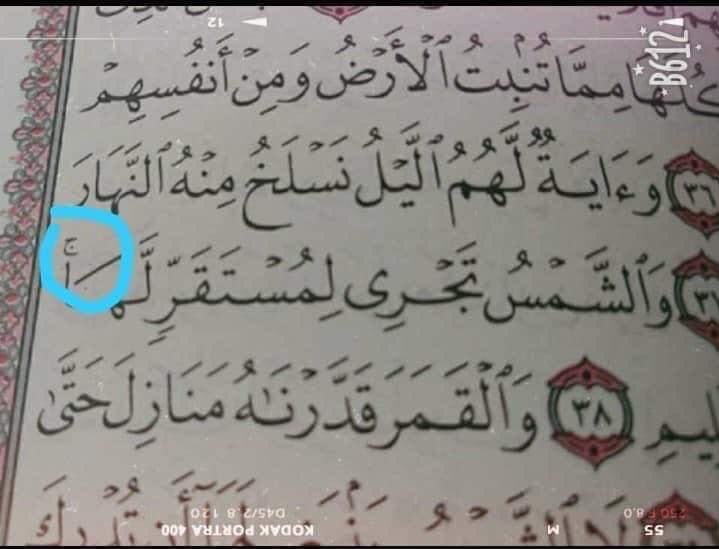 12
B612
كُلَّهَا مِمَّا تُنۢبِتُ ٱلْأَرْضُ وَمِنْ أَنفُسِهِمْ
٣٦ وَءَايَةٌ لَّهُمُ ٱلَّيْلُ نَسْلَخُ مِنْهُ ٱلنَّهَارَ
وَٱلشَّمْسُ تَجْرِى لِمُسْتَقَرٍّ لَّهَاۚ
لِيمِ ٣٨ وَٱلْقَمَرَ قَدَّرْنَٰهُ مَنَازِلَ حَتَّىٰ
55 M KODAK PORTRA 400
250 F8.0 D45/2.8 120